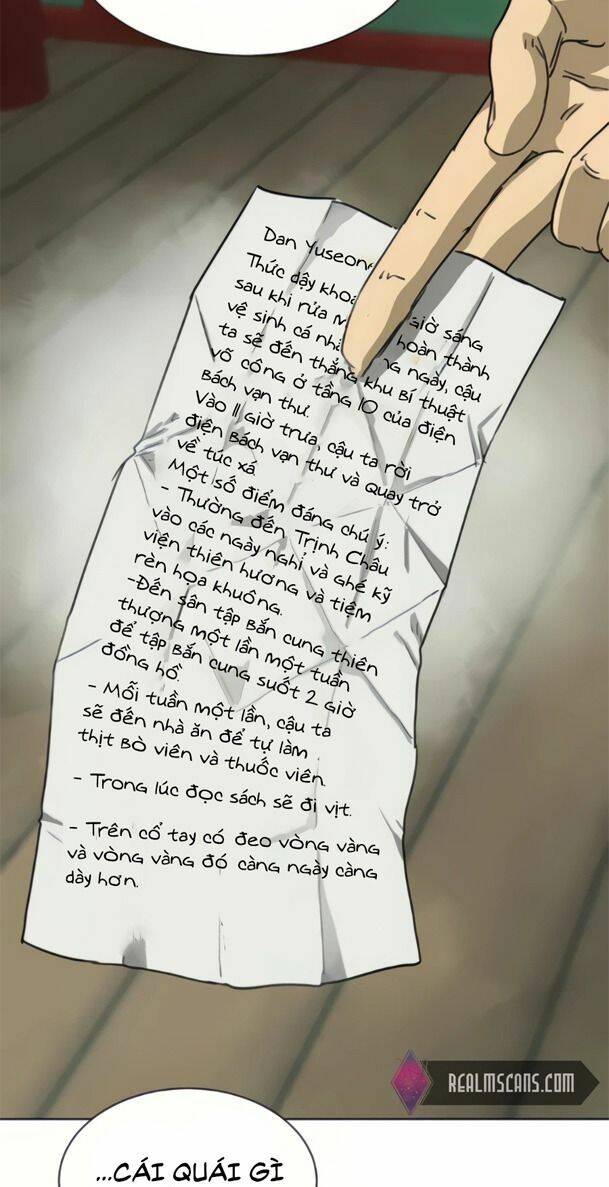 Dan Yuseong
Thức dậy giờ sáng
sau khi rửa hoàn thành
vệ sinh cá ngày, cậu
ta sẽ đến thẳng khu bí thuật
võ công ở tầng 10 của điện
Bách vạn thư.
Vào 11 giờ trưa, cậu ta rời
điện Bách vạn thư và quay trở
về túc xá
Một số điểm đáng chứ ý:
- Thường đến Trịnh Châu
vào các ngày nghỉ và ghé kỹ
viện thiên hương và tiệm
rèn họa khuông.
-Đến sân tập bắn cung thiên
thượng một lần một tuần
để tập bắn cung suốt 2 giờ
đồng hồ.
- Mỗi tuần một lần, cậu ta
sẽ đến nhà ăn để tự làm
thịt bò viên và thuốc viên.
- Trong lúc đọc sách sẽ đi vịt.
- Trên cổ tay có đeo vòng vàng
và vòng vàng đó càng ngày càng
dày hơn.
REALMSCANS.COM
...CÁI QUÁI GÌ